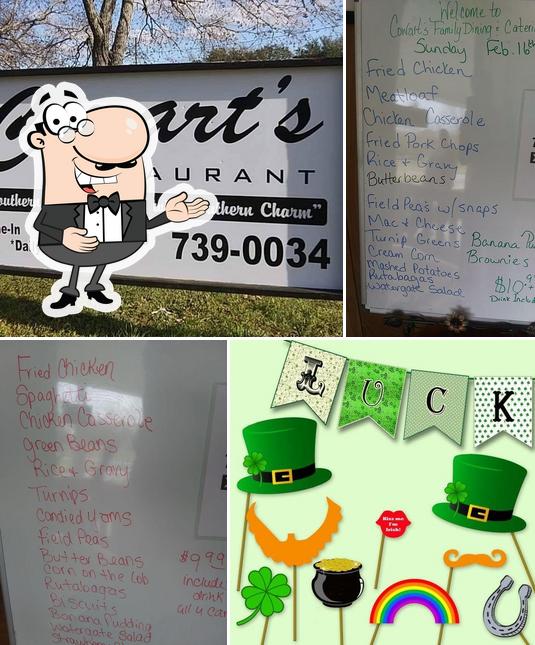 art's
AURANT
hern Charm"
739-0034
Welcome to
Cowart's Family Dining & Cateri
Sunday Feb. 16th
Fried Chicken
Meatloaf
Chicken Casserole
Fried Pork Chops
Rice & Gravy
Butterbeans
Field Peas w/snaps
Mac & Cheese
Turnip Greens
Cream Corn
Mashed Potatoes
Rutabagas
Watergate Salad
Banana Pu
Brownies
$10.
Drink Includ
Fried Chicken
Spaghetti
Chicken Casserole
Green Beans
Rice & Gravy
Turnips
Candied Yams
Field Peas
Butter Beans
Corn on the Cob
Rutabagas
Biscuits
Banana Pudding
Watergate Salad
$9.99
Include
drink
all u can
LUCK
Kiss me
I'm
Irish!